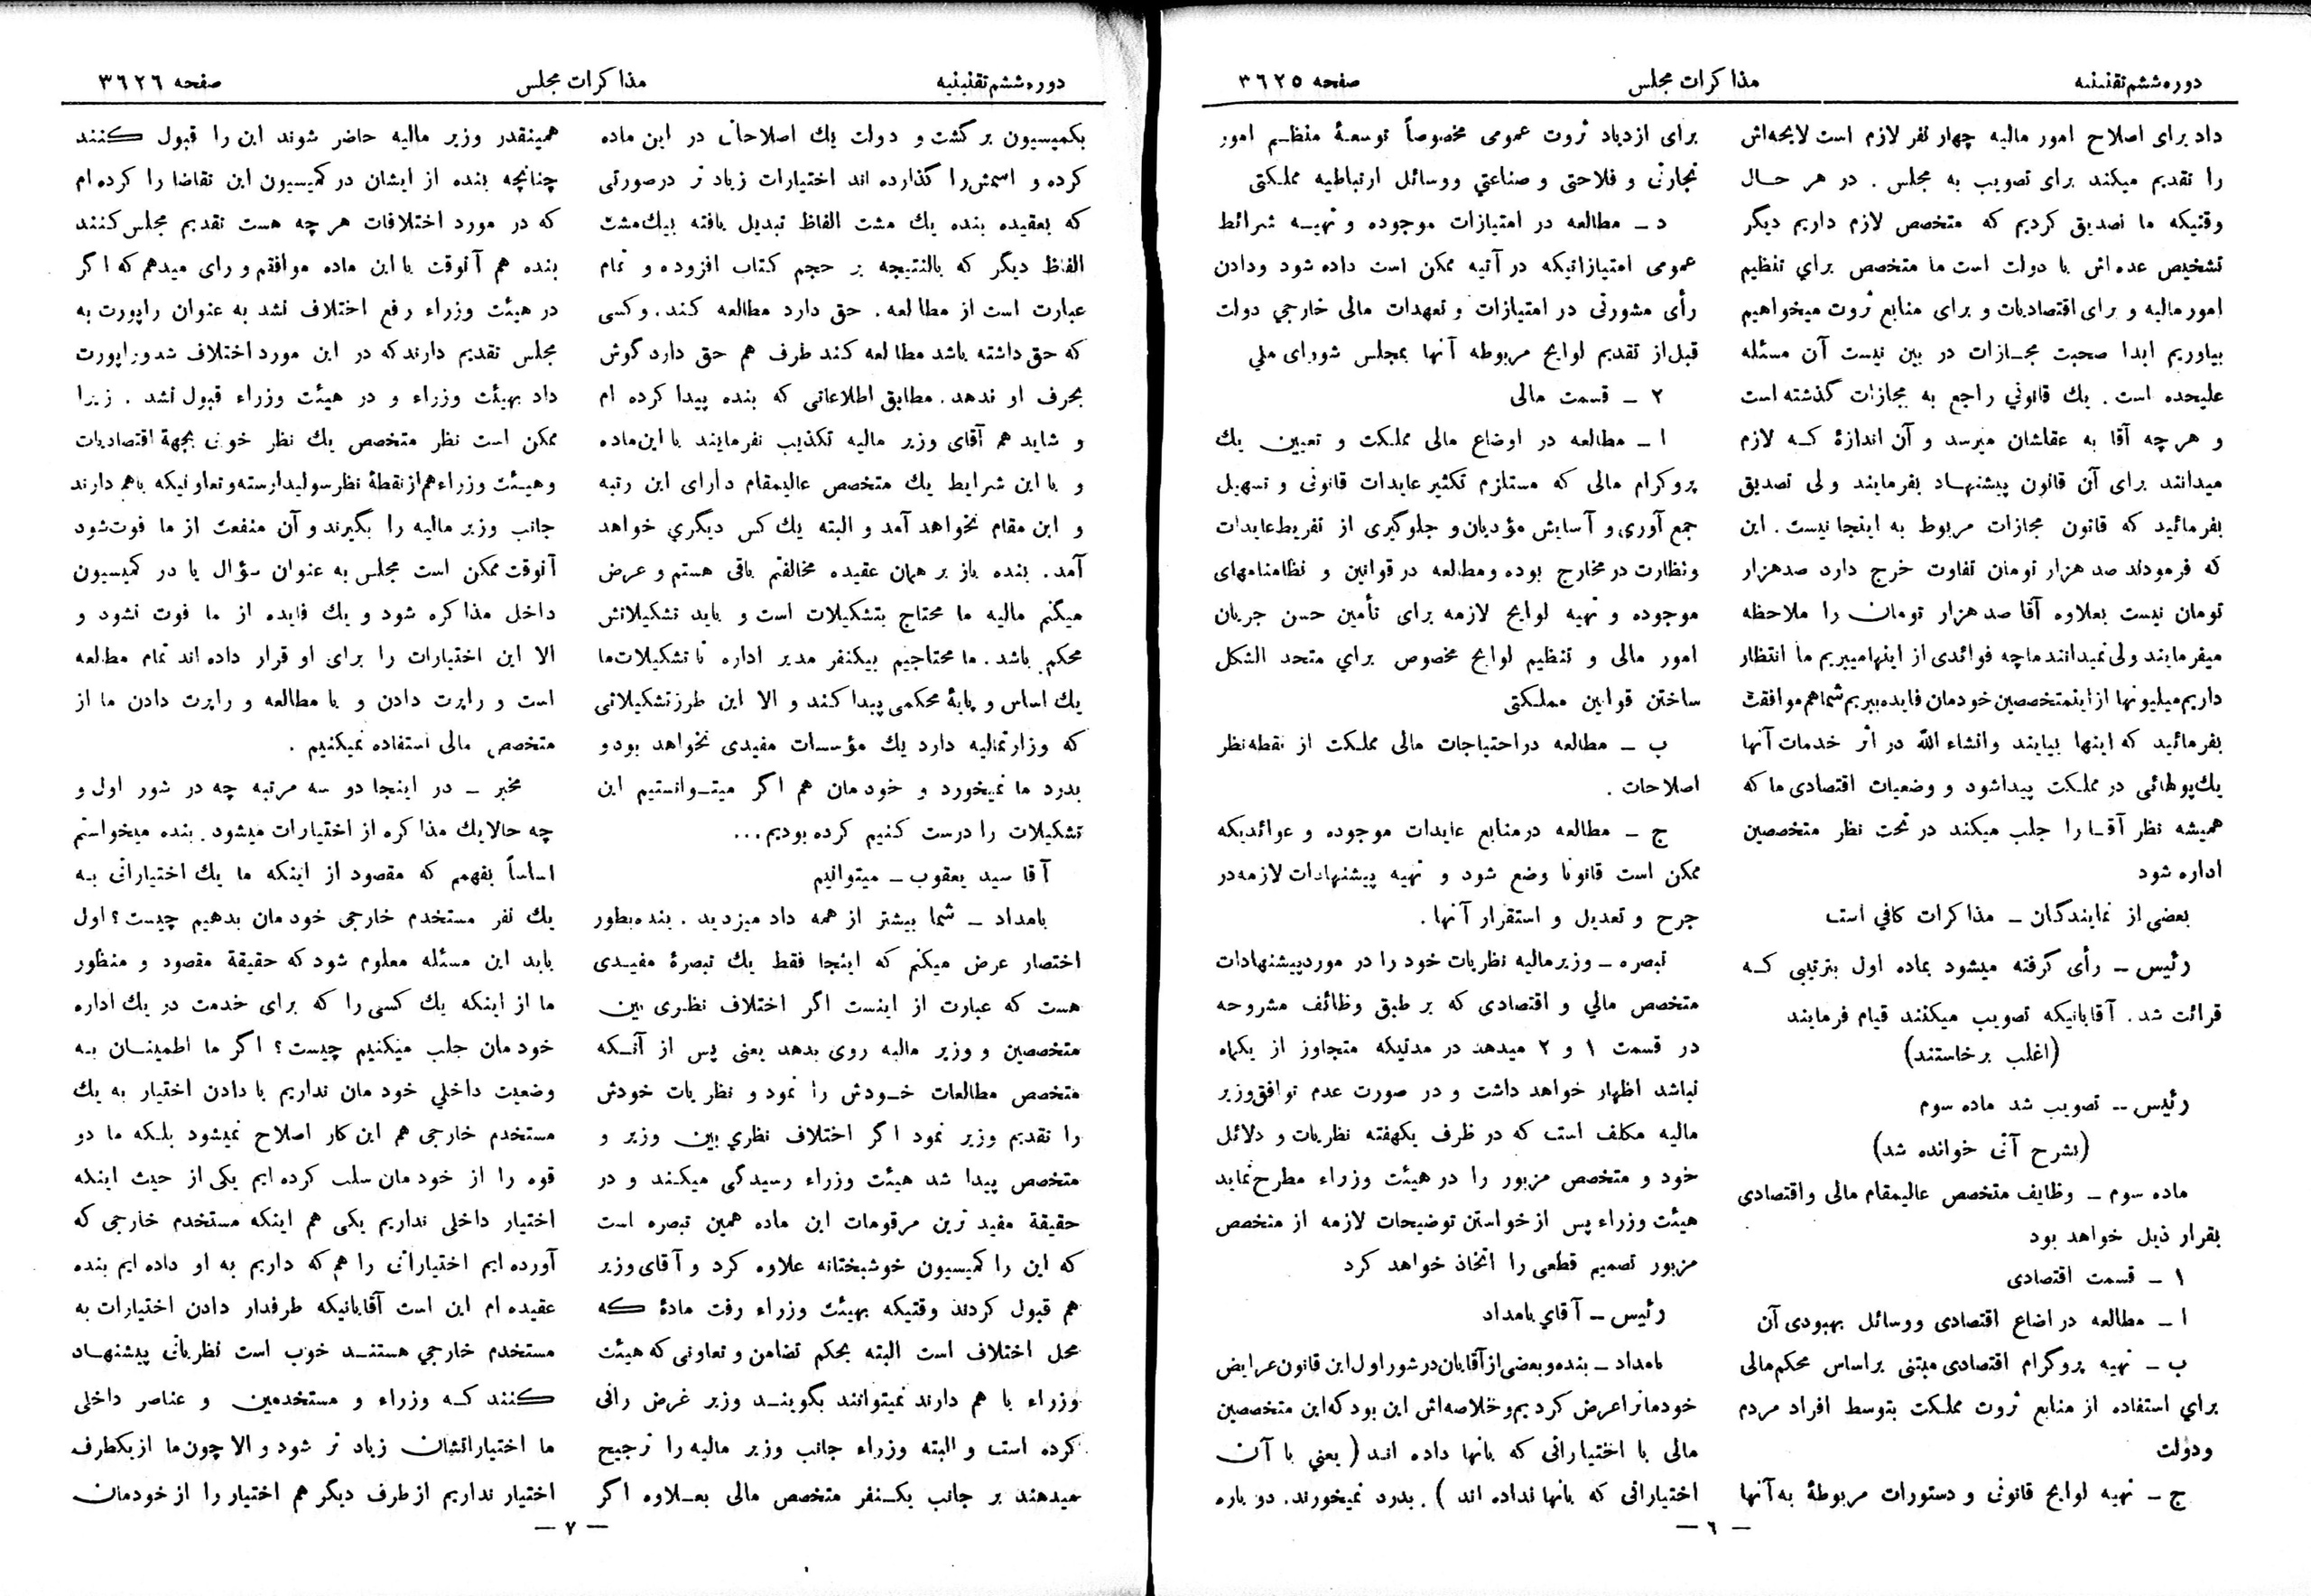 دوره ششم تقنینیه
مذاکرات مجلس
صفحه ۳۶۲۵
داد برای اصلاح امور مالیه چهار نفر لازم است لایحه‌اش
را تقدیم میکند برای تصویب به مجلس . در هر حال
وقتیکه ما تصدیق کردیم که متخصص لازم داریم دیگر
تشخیص عده‌اش با دولت است ما متخصص برای تنظیم
امور مالیه و برای اقتصادیات و برای منابع ثروت میخواهیم
بیاوریم ابدا صحبت مجازات در بین نیست آن مسئله
علیحده است . یك قانونی راجع به مجازات گذشته است
و هر چه آقا به عقلشان میرسد و آن اندازهٔ که لازم
میدانند برای آن قانون پیشنهاد بفرمایند ولی تصدیق
بفرمائید که قانون مجازات مربوط به اینجا نیست . این
که فرمودند صد هزار تومان تفاوت خرج دارد صد هزار
تومان نیست بعلاوه آقا صد هزار تومان را ملاحظه
میفرمایند ولی نمیدانند ماچه فوائدی از اینها میبریم ما انتظار
داریم میلیونها از این متخصصین خودمان فایده ببریم شما هم موافقت
بفرمائید که اینها بیایند وانشاء الله در اثر خدمات آنها
یك پولهائی در مملکت پیدا شود و وضعیات اقتصادی ما که
همیشه نظر آقا را جلب میکند در تحت نظر متخصصین
اداره شود
بعضی از نمایندگان ـ مذاکرات کافی است
رئیس ـ رأی گرفته میشود بماده اول بترتیبی که
قرائت شد . آقایانیکه تصویب میکنند قیام فرمایند
(اغلب برخاستند)
رئیس ـ تصویب شد ماده سوم
(بشرح آتی خوانده شد)
ماده سوم ـ وظایف متخصص عالیمقام مالی واقتصادی
بقرار ذیل خواهد بود
۱ ـ قسمت اقتصادی
ا ـ مطالعه در اضاع اقتصادی ووسائل بهبودی آن
ب ـ تهیه پروگرام اقتصادی مبتنی براساس محکم مالی
برای استفاده از منابع ثروت مملکت بتوسط افراد مردم
ودولت
ج ـ تهیه لوایح قانونی و دستورات مربوطهٔ به آنها
برای ازدیاد ثروت عمومی مخصوصاً توسعهٔ منظم امور
تجارتی و فلاحتی و صناعتی ووسائل ارتباطیه مملکتی
د ـ مطالعه در امتیازات موجوده و تهیه شرائط
عمومی امتیازاتیکه در آتیه ممکن است داده شود ودادن
رأی مشورتی در امتیازات و تعهدات مالی خارجی دولت
قبل از تقدیم لوایح مربوطه آنها بمجلس شورای ملی
۲ ـ قسمت مالی
ا ـ مطالعه در اوضاع مالی مملکت و تعیین یك
پروگرام مالی که مستلزم تکثیر عایدات قانونی و تسهیل
جمع آوری و آسایش مؤدیان و جلوگیری از تفریط عایدات
ونظارت در مخارج بوده ومطالعه در قوانین و نظامنامهای
موجوده و تهیه لوایح لازمه برای تأمین حسن جریان
امور مالی و تنظیم لوایح مخصوص برای متحد الشکل
ساختن قوانین مملکتی
ب ـ مطالعه در احتیاجات مالی مملکت از نقطه نظر
اصلاحات .
ج ـ مطالعه درمنابع عایدات موجوده و عوائدیکه
ممکن است قانونا وضع شود و تهیه پیشنهادات لازمه در
جرح و تعدیل و استقرار آنها .
تبصره ـ وزیر مالیه نظریات خود را در مورد پیشنهادات
متخصص مالی و اقتصادی که بر طبق وظائف مشروحه
در قسمت ۱ و ۲ میدهد در مدتیکه متجاوز از یکماه
نباشد اظهار خواهد داشت و در صورت عدم توافق وزیر
مالیه مکلف است که در ظرف یکهفته نظریات و دلائل
خود و متخصص مزبور را در هیئت وزراء مطرح نماید
هیئت وزراء پس از خواستن توضیحات لازمه از متخصص
مزبور تصمیم قطعی را اتخاذ خواهد کرد
رئیس ـ آقای بامداد
بامداد ـ بنده وبعضی از آقایان در شور اول این قانون عرایض
خودمانرا عرض کردیم وخلاصه‌اش این بود که این متخصصین
مالی با اختیاراتی که بانها داده اند ( یعنی با آن
اختیاراتی که بانها نداده اند ) . بدرد نمیخورند . دو باره
ـ ۶ ـ
دوره ششم تقنینیه
مذاکرات مجلس
صفحه ۳۶۲۶
بکمیسیون برگشت و دولت یك اصلاحاتی در این ماده
کرده و اسمش را گذارده اند اختیارات زیاد تر درصورتی
که بعقیده بنده یك مشت الفاظ تبدیل یافته بیك مشت
الفاظ دیگر که بالنتیجه بر حجم کتاب افزوده و تمام
عبارت است از مطالعه . حق دارد مطالعه کند . وکسی
که حق داشته باشد مطالعه کند طرف هم حق دارد گوش
بحرف او ندهد . مطابق اطلاعاتی که بنده پیدا کرده ام
و شاید هم آقای وزیر مالیه تکذیب نفرمایند با این ماده
و با این شرایط یك متخصص عالیمقام دارای این رتبه
و این مقام نخواهد آمد و البته یك کس دیگری خواهد
آمد . بنده باز بر همان عقیده مخالفتم باقی هستم و عرض
میکنم مالیه ما محتاج بتشکیلات است و باید تشکیلاتش
محکم باشد . ما محتاجیم بیکنفر مدیر اداره تا تشکیلات ما
یك اساس و پایهٔ محکمی پیدا کند و الا این طرز تشکیلاتی
که وزارتمالیه دارد یك مؤسسات مفیدی نخواهد بود و
بدرد ما نمیخورد و خودمان هم اگر میتوانستیم این
تشکیلات را درست کنیم کرده بودیم ...
آقا سید یعقوب ـ میتوانیم
بامداد ـ شما بیشتر از همه داد میزدید . بنده بطور
اختصار عرض میکنم که اینجا فقط یك تبصرهٔ مفیدی
هست که عبارت از اینست اگر اختلاف نظری بین
متخصصین و وزیر مالیه روی بدهد یعنی پس از آنکه
متخصص مطالعات خودش را نمود و نظریات خودش
را تقدیم وزیر نمود اگر اختلاف نظری بین وزیر و
متخصص پیدا شد هیئت وزراء رسیدگی میکند و در
حقیقة مفید ترین مرقومات این ماده همین تبصره است
که این را کمیسیون خوشبختانه علاوه کرد و آقای وزیر
هم قبول کردند وقتیکه بهیئت وزراء رفت مادهٔ که
محل اختلاف است البته بحکم تضامن و تعاونی که هیئت
وزراء با هم دارند نمیتوانند بگویند وزیر غرض رانی
کرده است و البته وزراء جانب وزیر مالیه را ترجیح
میدهند بر جانب یکنفر متخصص مالی بعلاوه اگر
همینقدر وزیر مالیه حاضر شوند این را قبول کنند
چنانچه بنده از ایشان در کمیسیون این تقاضا را کرده ام
که در مورد اختلافات هر چه هست تقدیم مجلس کنند
بنده هم آنوقت با این ماده موافقم و رای میدهم که اگر
در هیئت وزراء رفع اختلاف نشد به عنوان راپورت به
مجلس تقدیم دارند که در این مورد اختلاف شد وراپورت
داد بهیئت وزراء و در هیئت وزراء قبول نشد . زیرا
ممکن است نظر متخصص یك نظر خوبی بجهة اقتصادیات
وهیئت وزراء هم از نقطهٔ نظر سولیداریته و تعاونیکه باهم دارند
جانب وزیر مالیه را بگیرند و آن منفعت از ما فوت شود
آنوقت ممکن است مجلس به عنوان سؤال یا در کمیسیون
داخل مذاکره شود و یك فایده از ما فوت نشود و
الا این اختیارات را برای او قرار داده اند تمام مطالعه
است و راپرت دادن و با مطالعه و راپرت دادن ما از
متخصص مالی استفاده نمیکنیم .
مخبر ـ در اینجا دو سه مرتبه چه در شور اول و
چه حالا یك مذاکره از اختیارات میشود . بنده میخواستم
اساساً بفهمم که مقصود از اینکه ما یك اختیاراتی به
یك نفر مستخدم خارجی خودمان بدهیم چیست ؟ اول
باید این مسئله معلوم شود که حقیقة مقصود و منظور
ما از اینکه یك کسی را که برای خدمت در یك اداره
خودمان جلب میکنیم چیست ؟ اگر ما اطمینان به
وضعیت داخلی خودمان نداریم با دادن اختیار به یك
مستخدم خارجی هم این کار اصلاح نمیشود بلکه ما دو
قوه را از خودمان سلب کرده ایم یکی از حیث اینکه
اختیار داخلی نداریم یکی هم اینکه مستخدم خارجی که
آورده ایم اختیاراتی را هم که داریم به او داده ایم بنده
عقیده ام این است آقایانیکه طرفدار دادن اختیارات به
مستخدم خارجی هستند خوب است نظریاتی پیشنهاد
کنند که وزراء و مستخدمین و عناصر داخلی
ما اختیاراتشان زیاد تر شود و الا چون ما از یکطرف
اختیار نداریم از طرف دیگر هم اختیار را از خودمان
ـ ۷ ـ